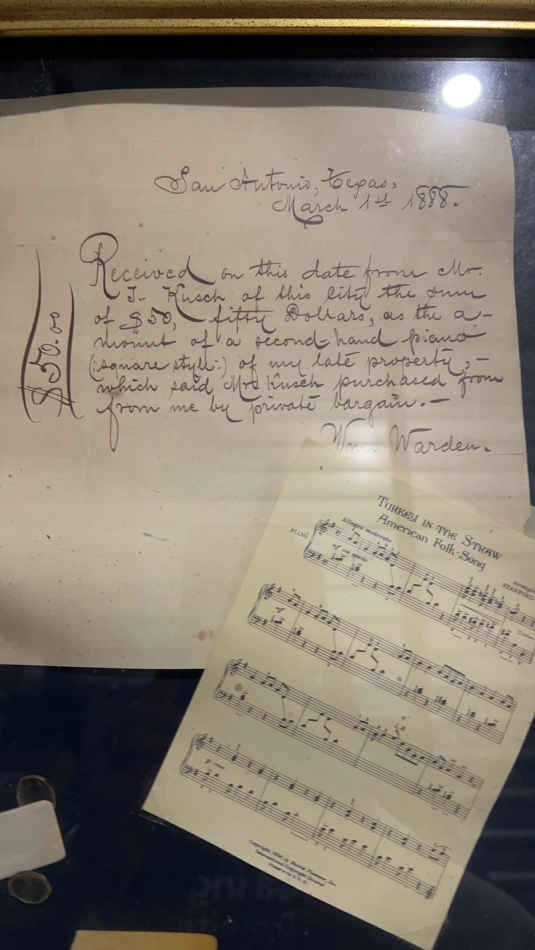 San Antonio, Texas,
March 1st 1888.
Received on this date from Mr.
J. Kusch of this City the sum
of $50, - fifty Dollars, as the a-
mount of a second-hand piano
(:square style:) of my late property, -
which said Mr. Kusch purchased from
from me by private bargain. -
Wm. Warden.
$50.00
TURKEY IN THE STRAW
American Folk-Song
Allegro moderato
PIANO